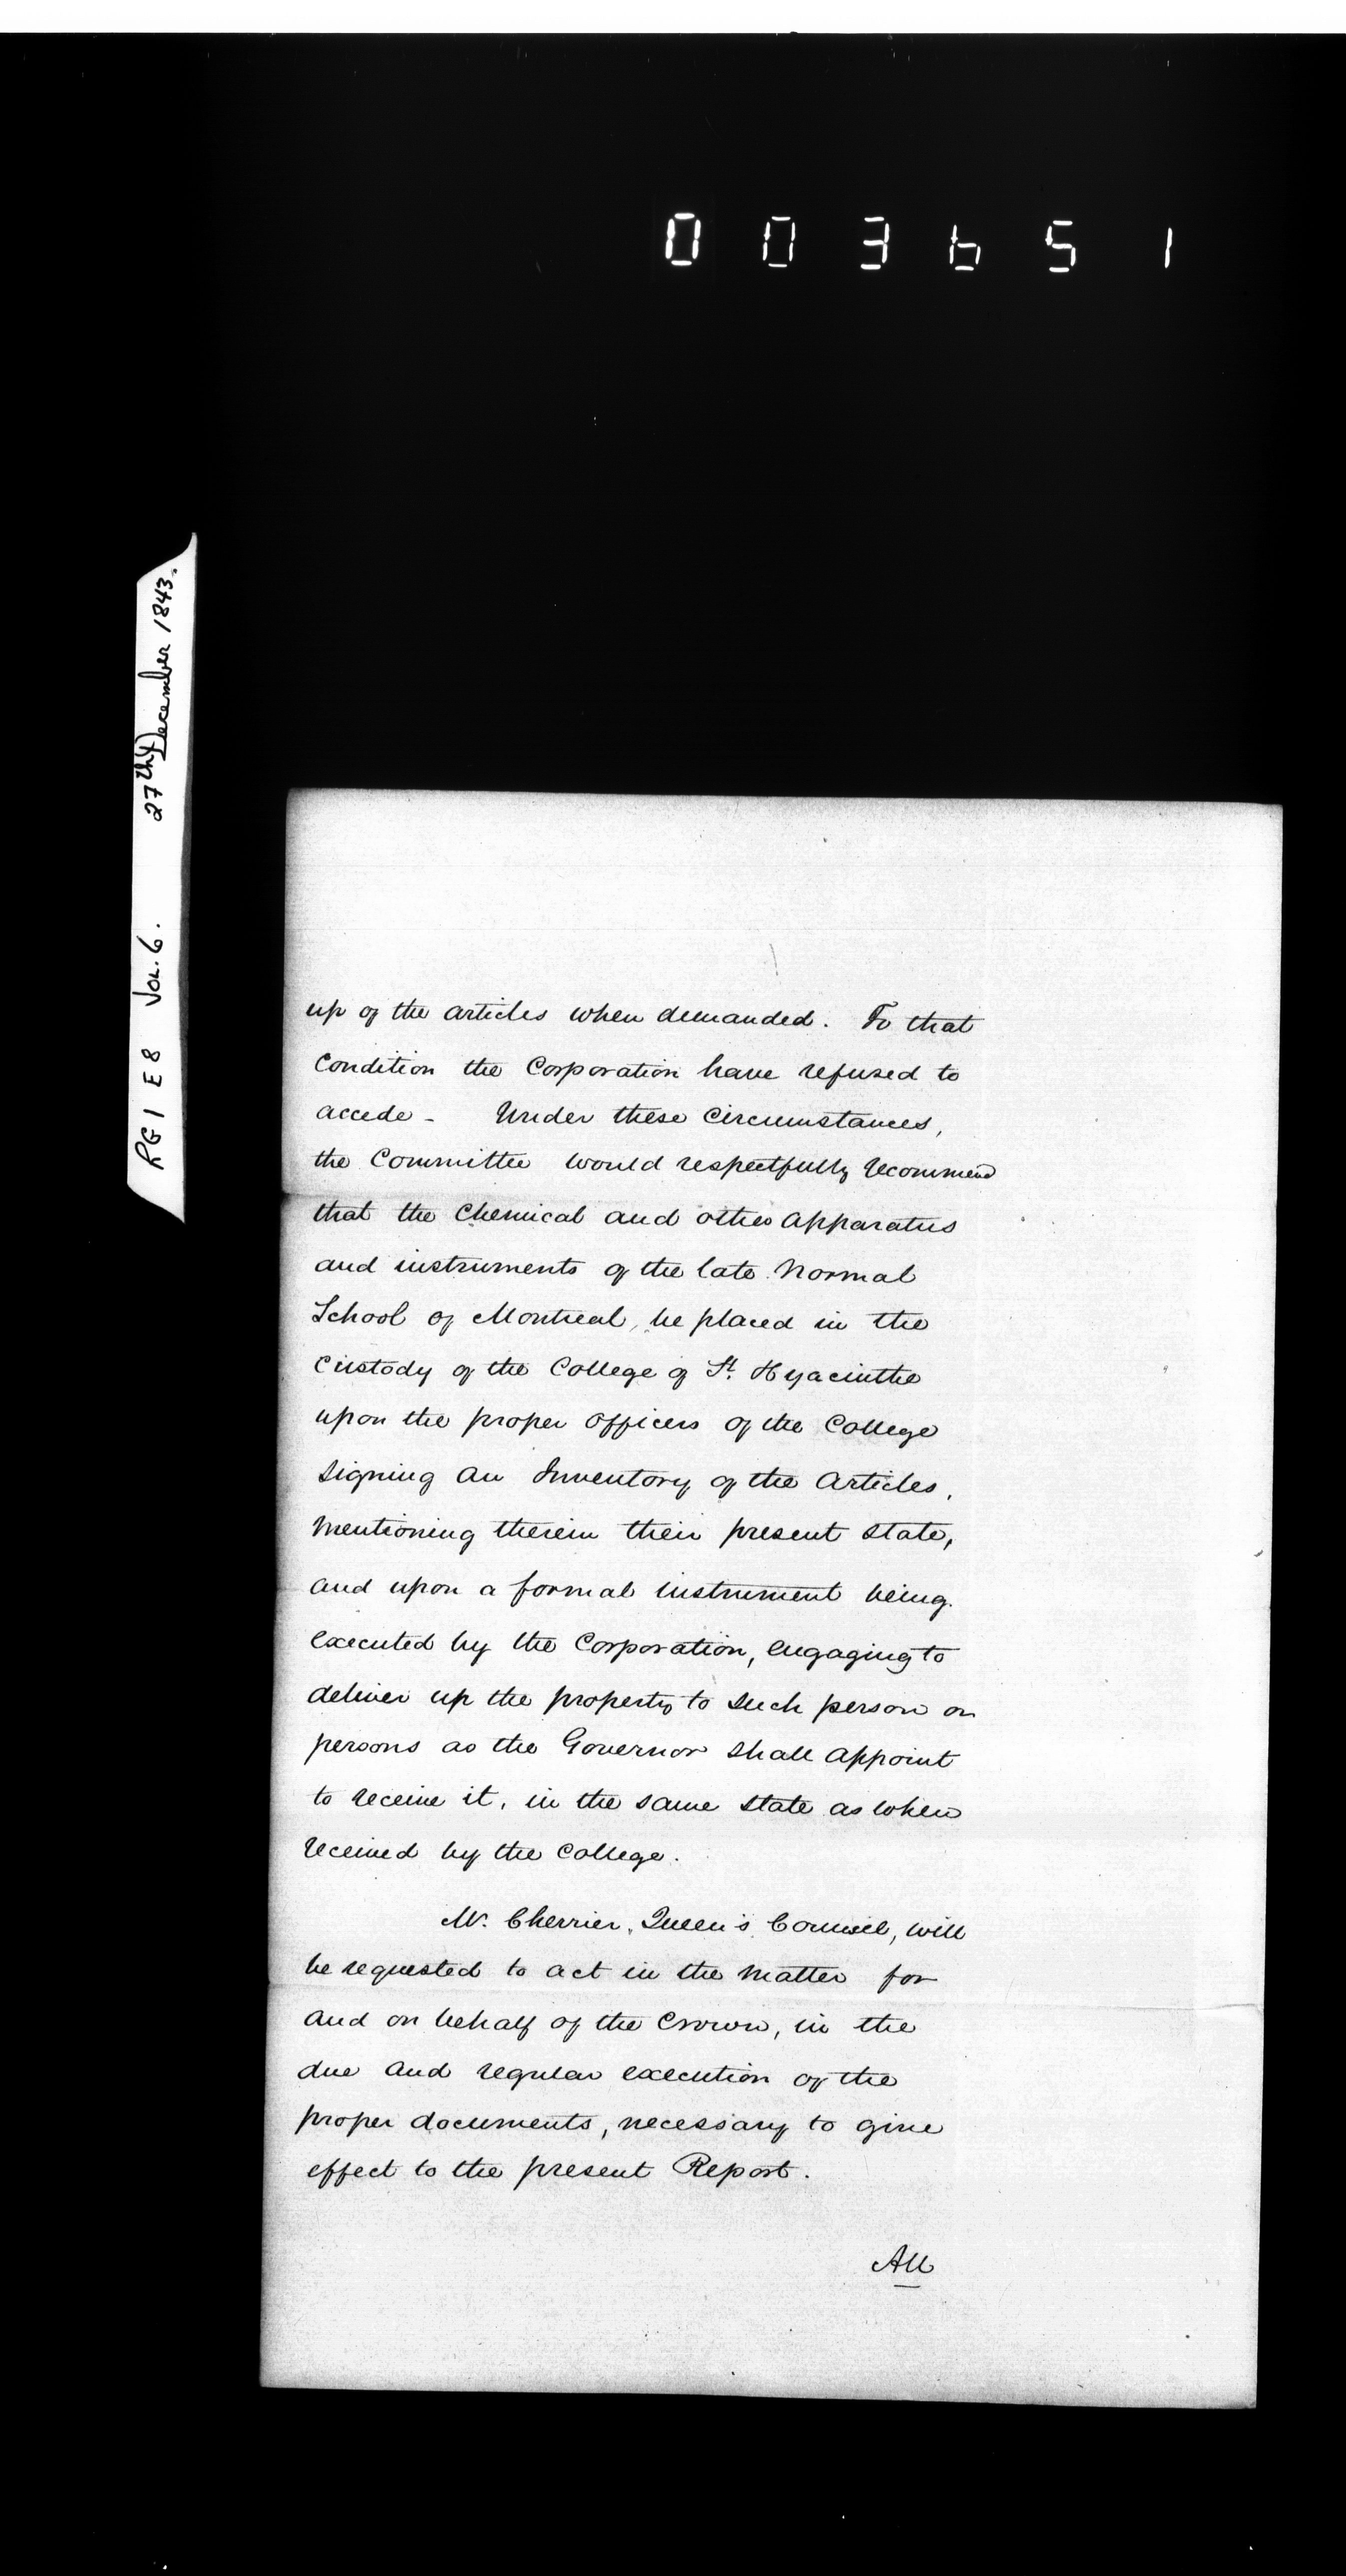 003651
RG 1 E 8 Vol. 6. 27th December 1843.
up of the articles when demanded. To that
Condition the Corporation have refused to
accede - Under these Circumstances,
the Committee would respectfully recommend
that the Chemical and other Apparatus
and instruments of the late Normal
School of Montreal, be placed in the
Custody of the College of St. Hyacinthe
upon the proper Officers of the College
signing an Inventory of the Articles,
mentioning therein their present state,
and upon a formal instrument being
executed by the Corporation, engaging to
deliver up the property to such person or
persons as the Governor shall appoint
to receive it, in the same state as when
received by the College.
Mr. Cherrier, Queen's Counsel, will
be requested to act in the matter for
and on behalf of the Crown, in the
due and regular execution of the
proper documents, necessary to give
effect to the present Report.
All